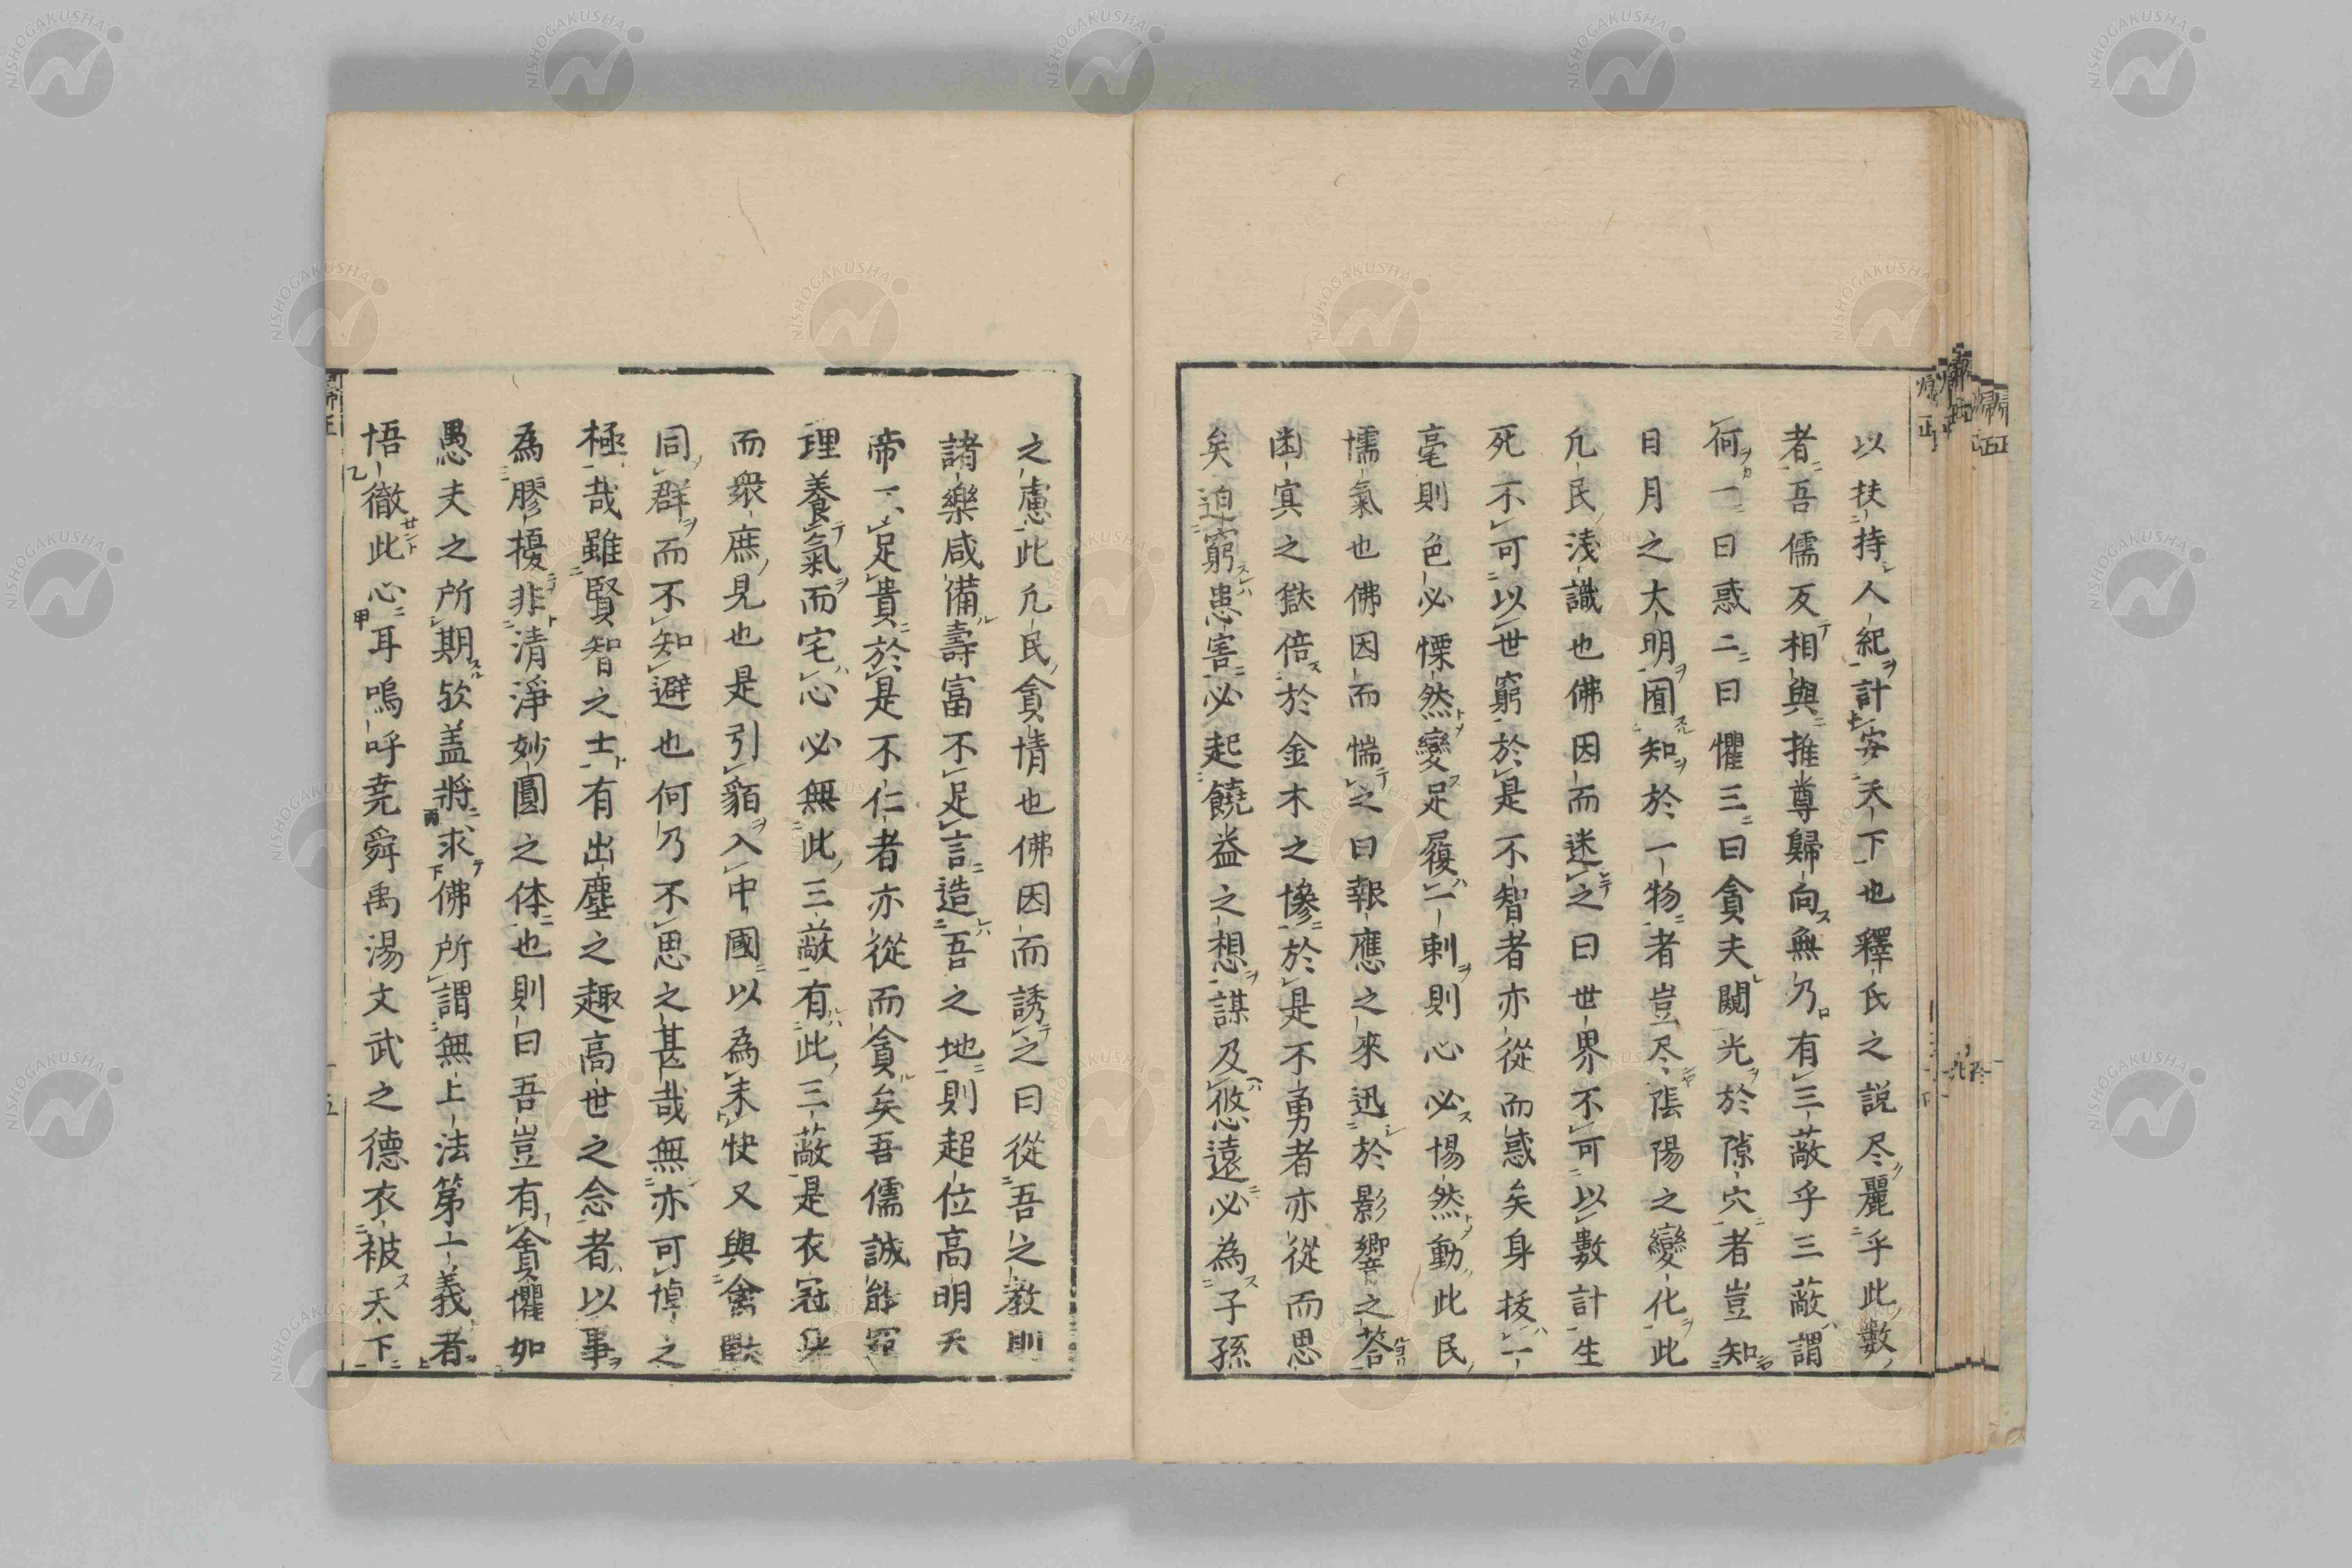 以扶持人紀計安天下也釋氏之説尽麗乎此數
者吾儒反相與推尊歸向無乃有三蔽乎三蔽謂
何一曰惑二曰懼三曰貪夫闚光於隙穴者豈知
日月之大明囿知於一物者豈尽陰陽之變化此
凢民浅識也佛因而迷之曰世界不可以數計生
死不可以世窮於是不智者亦從而惑矣身拔一
毫則色必慄然變足履一刺則心必惕然動此民
懦氣也佛因而惴之曰報應之來迅於影響之荅
幽冥之獄倍於金木之慘於是不勇者亦從而恐
矣迫窮患害必起饒益之想謀及悠遠必為子孫
之慮此凢民貪情也佛因而誘之曰從吾之教則
諸樂咸備壽富不足言造吾之地則超位高明天
帝不足貴於是不仁者亦從而貪矣吾儒誠能窮
理養氣而宅心必無此三蔽有此三蔽是衣冠身
而衆庶見也是引貊入中國以為未快又與禽獸
同群而不知避也何乃不思之甚哉無亦可悼之
極哉雖賢智之士有出塵之趣高世之念者以事
為膠擾非清淨妙圓之体也則曰吾豈有貪懼如
愚夫之所期欤盖將求佛所謂無上法第一義者
悟徹此心耳嗚呼尭舜禹湯文武之德衣被天下
歸正
五
NISHOGAKUSHA